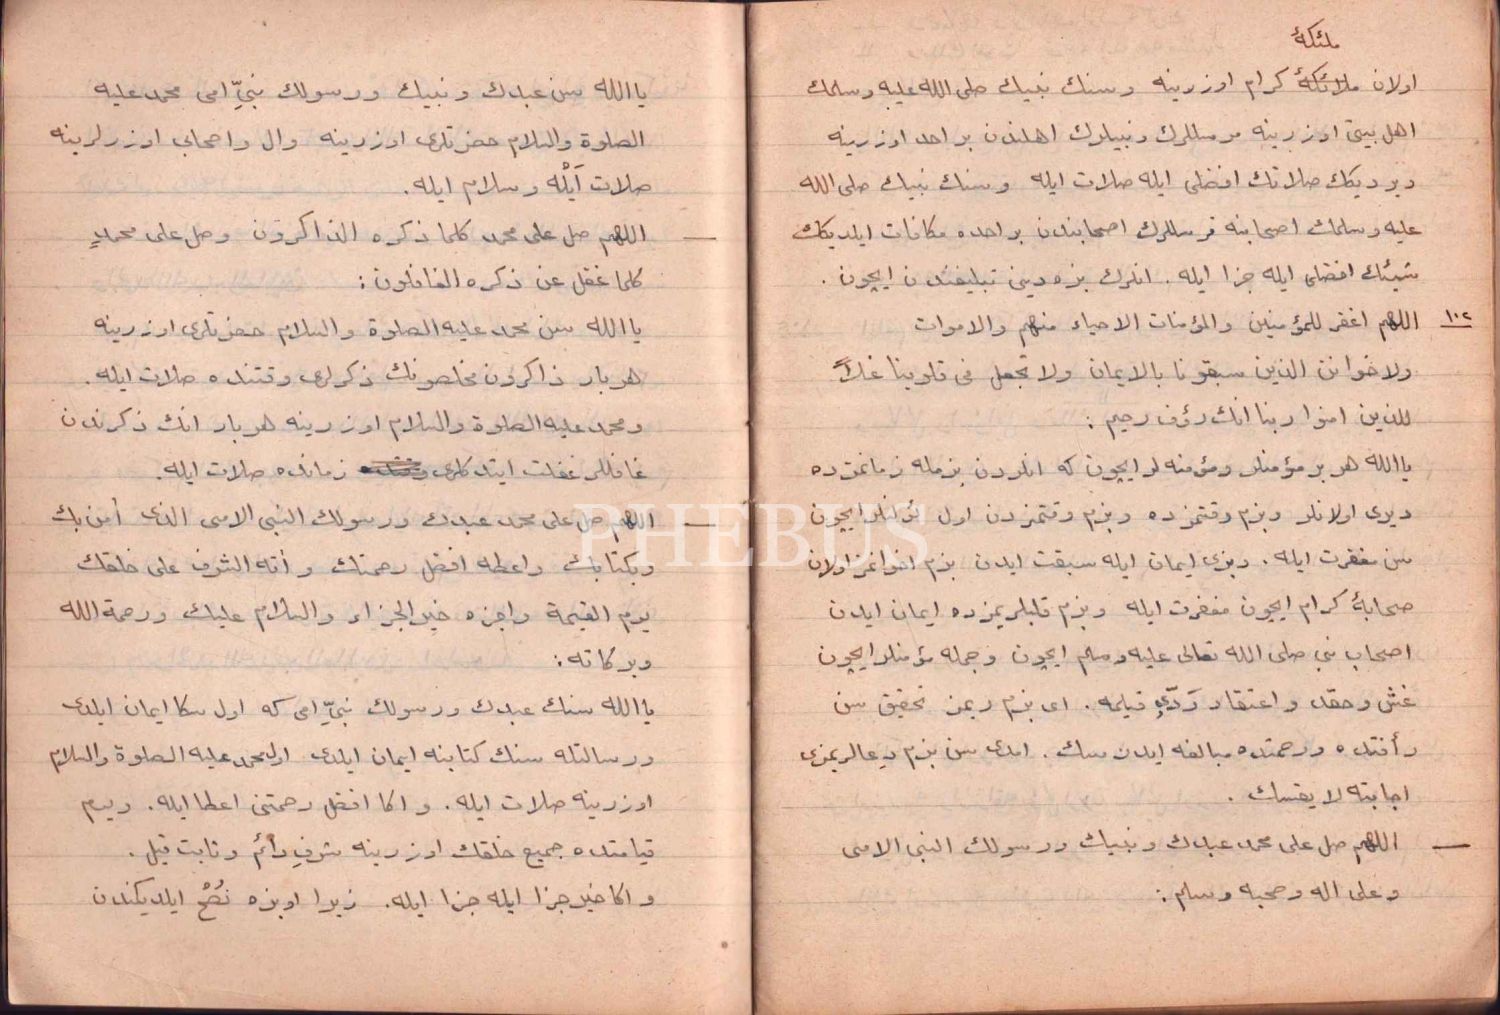 ملئكۀ
اولان ملائكۀ كرام اوزرينه وسنك نبيك صلى الله عليه وسلمك
اهل بيتى اوزرينه مرسللرك ونبيلرك اهلندن بر احد اوزرينه
ويرديكك صلاتك افضلى ايله صلات ايله وسنك نبيك صلى الله
عليه وسلمك اصحابنه مرسللرك اصحابندن بر احده مكافات ايلديكك
شيئك افضلى ايله جزا ايله . انلرك بزه دينى تبليغندن ايچون .
١٠٢ اللهم اغفر للمؤمنين والمؤمنات الاحياء منهم والاموات
ولاخواننا الذين سبقونا بالايمان ولا تجعل فى قلوبنا غلاً
للذين امنوا ربنا انك رؤف رحيم :
يا الله هر بر مؤمنلر ومؤمنه لر ايچون كه انلردن بزمله زمانمزده
ديرى اولانلر وبزم وقتمزده وبزم وقتمزدن اول ايچون
سن مغفرت ايله . وبزى ايمان ايله سبقت ايدن بزم اخوانمز اولان
صحابۀ كرام ايچون مغفرت ايله وبزم قلبلريمزده ايمان ايدن
اصحاب نبى صلى الله تعالى عليه وسلم ايچون وجمله مؤمنلر ايچون
غش وحقد واعتقاد ردى قيلمه . اى بزم ربمز تحقيق سن
رأفتده ورحمتده مبالغه ايدن سك . امدى سن بزم دعالريمزى
اجابته لايقسك .
اللهم صل على محمد عبدك ونبيك ورسولك النبى الامى
وعلى اله وصحبه وسلم :
يا الله سن عبدك ونبيك ورسولك نبىِّ امى محمد عليه
الصلوة والسلام حضرتلرى اوزرينه وال واصحابى اوزرلرينه
صلات ايله وسلام ايله .
اللهم صل على محمد كلما ذكره الذاكرون وصل على محمدٍ
كلما غفل عن ذكره الغافلون :
يا الله سن محمد عليه الصلوة والسلام حضرتلرى اوزرينه
هر بار ذاكرون مخلصونك ذكرلرى وقتنده صلات ايله .
ومحمد عليه الصلوة والسلام اوزرينه هر بار انك ذكرندن
غافللر غفلت ايتدكلرى زمانده صلات ايله .
اللهم صل على محمد عبدك ورسولك النبى الامى الذى أمن بك
وبكتابك واعطه افضل رحمتك وأته الشرف على خلقك
يوم القيمة واجزه خير الجزاء والسلام عليك ورحمة الله
وبركاته :
يا الله سنك عبدك ورسولك نبىِّ امى كه اول سكا ايمان ايلدى
ورسالتله سنك كتابنه ايمان ايلدى اول محمد عليه الصلوة والسلام
اوزرينه صلات ايله . واكا افضل رحمتنى اعطا ايله . ويوم
قيامتده جميع خلقك اوزرينه شرفِ دائم وثابت قيل .
واكا خير جزا ايله جزا ايله . زيرا او بزه نصْح ايلديكندن
PHEBUS